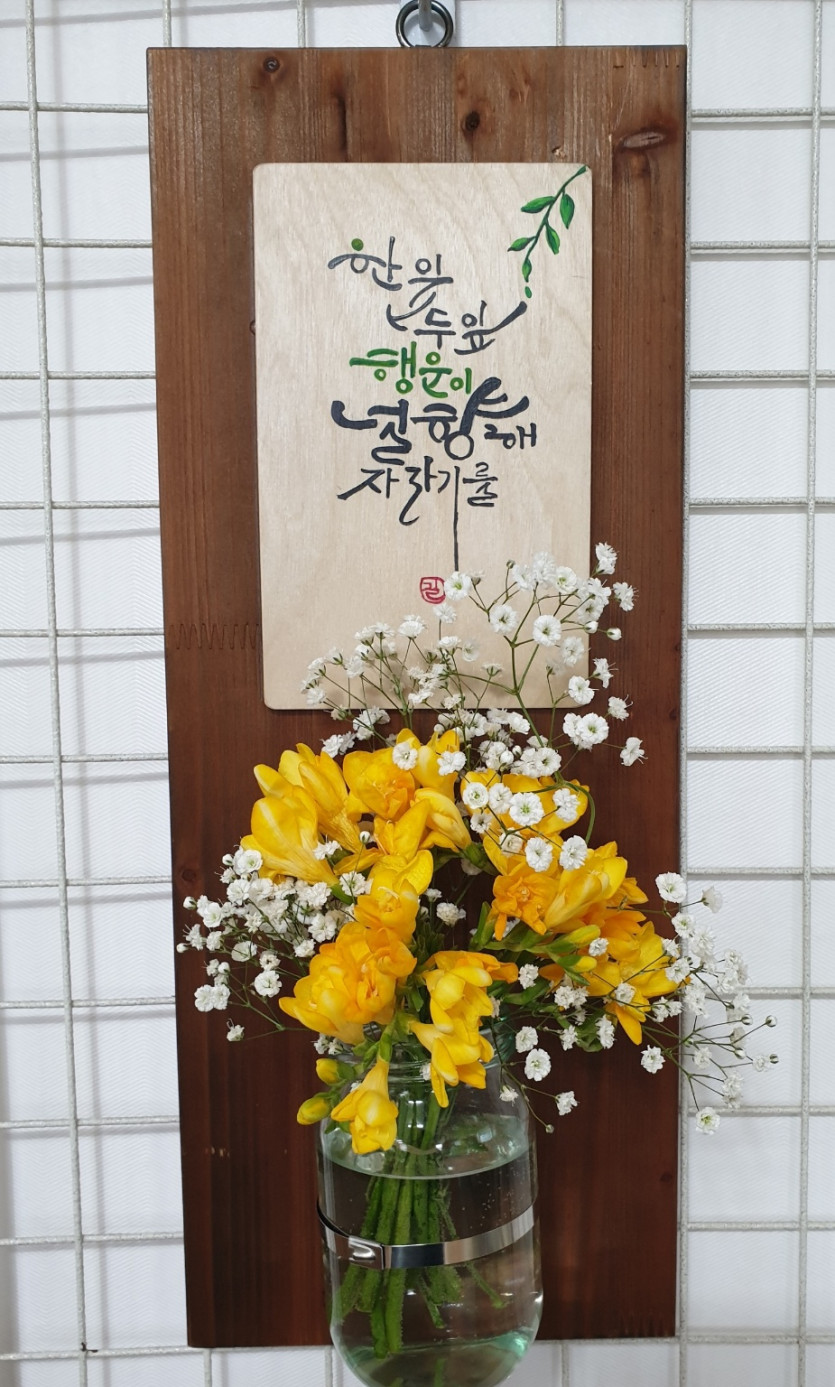 한 잎
두 잎
행운이
널 향해
자라기를